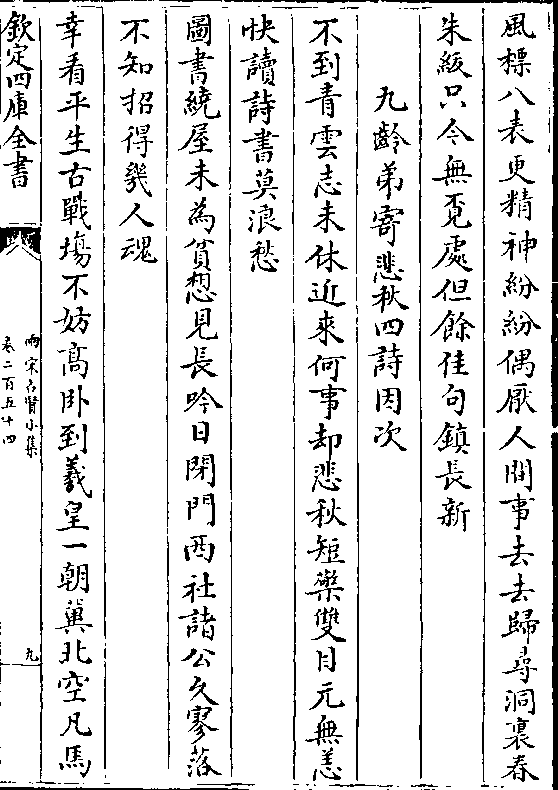 風標八表更精神紛紛偶厭人間事去去歸尋洞裏春
朱紱只今無覓處但餘佳句鎮長新
九齡弟寄悲秋四詩因次
不到青雲志未休近來何事却悲秋短檠雙目元無恙
快讀詩書莫浪愁
圖書繞屋未為貧想見長吟日閉門西社諸公久寥落
不知招得幾人魂
幸看平生古戰塲不妨高卧到羲皇一朝冀北空凡馬
欽定四庫全書
兩宋名賢小集
卷二百五十四
九